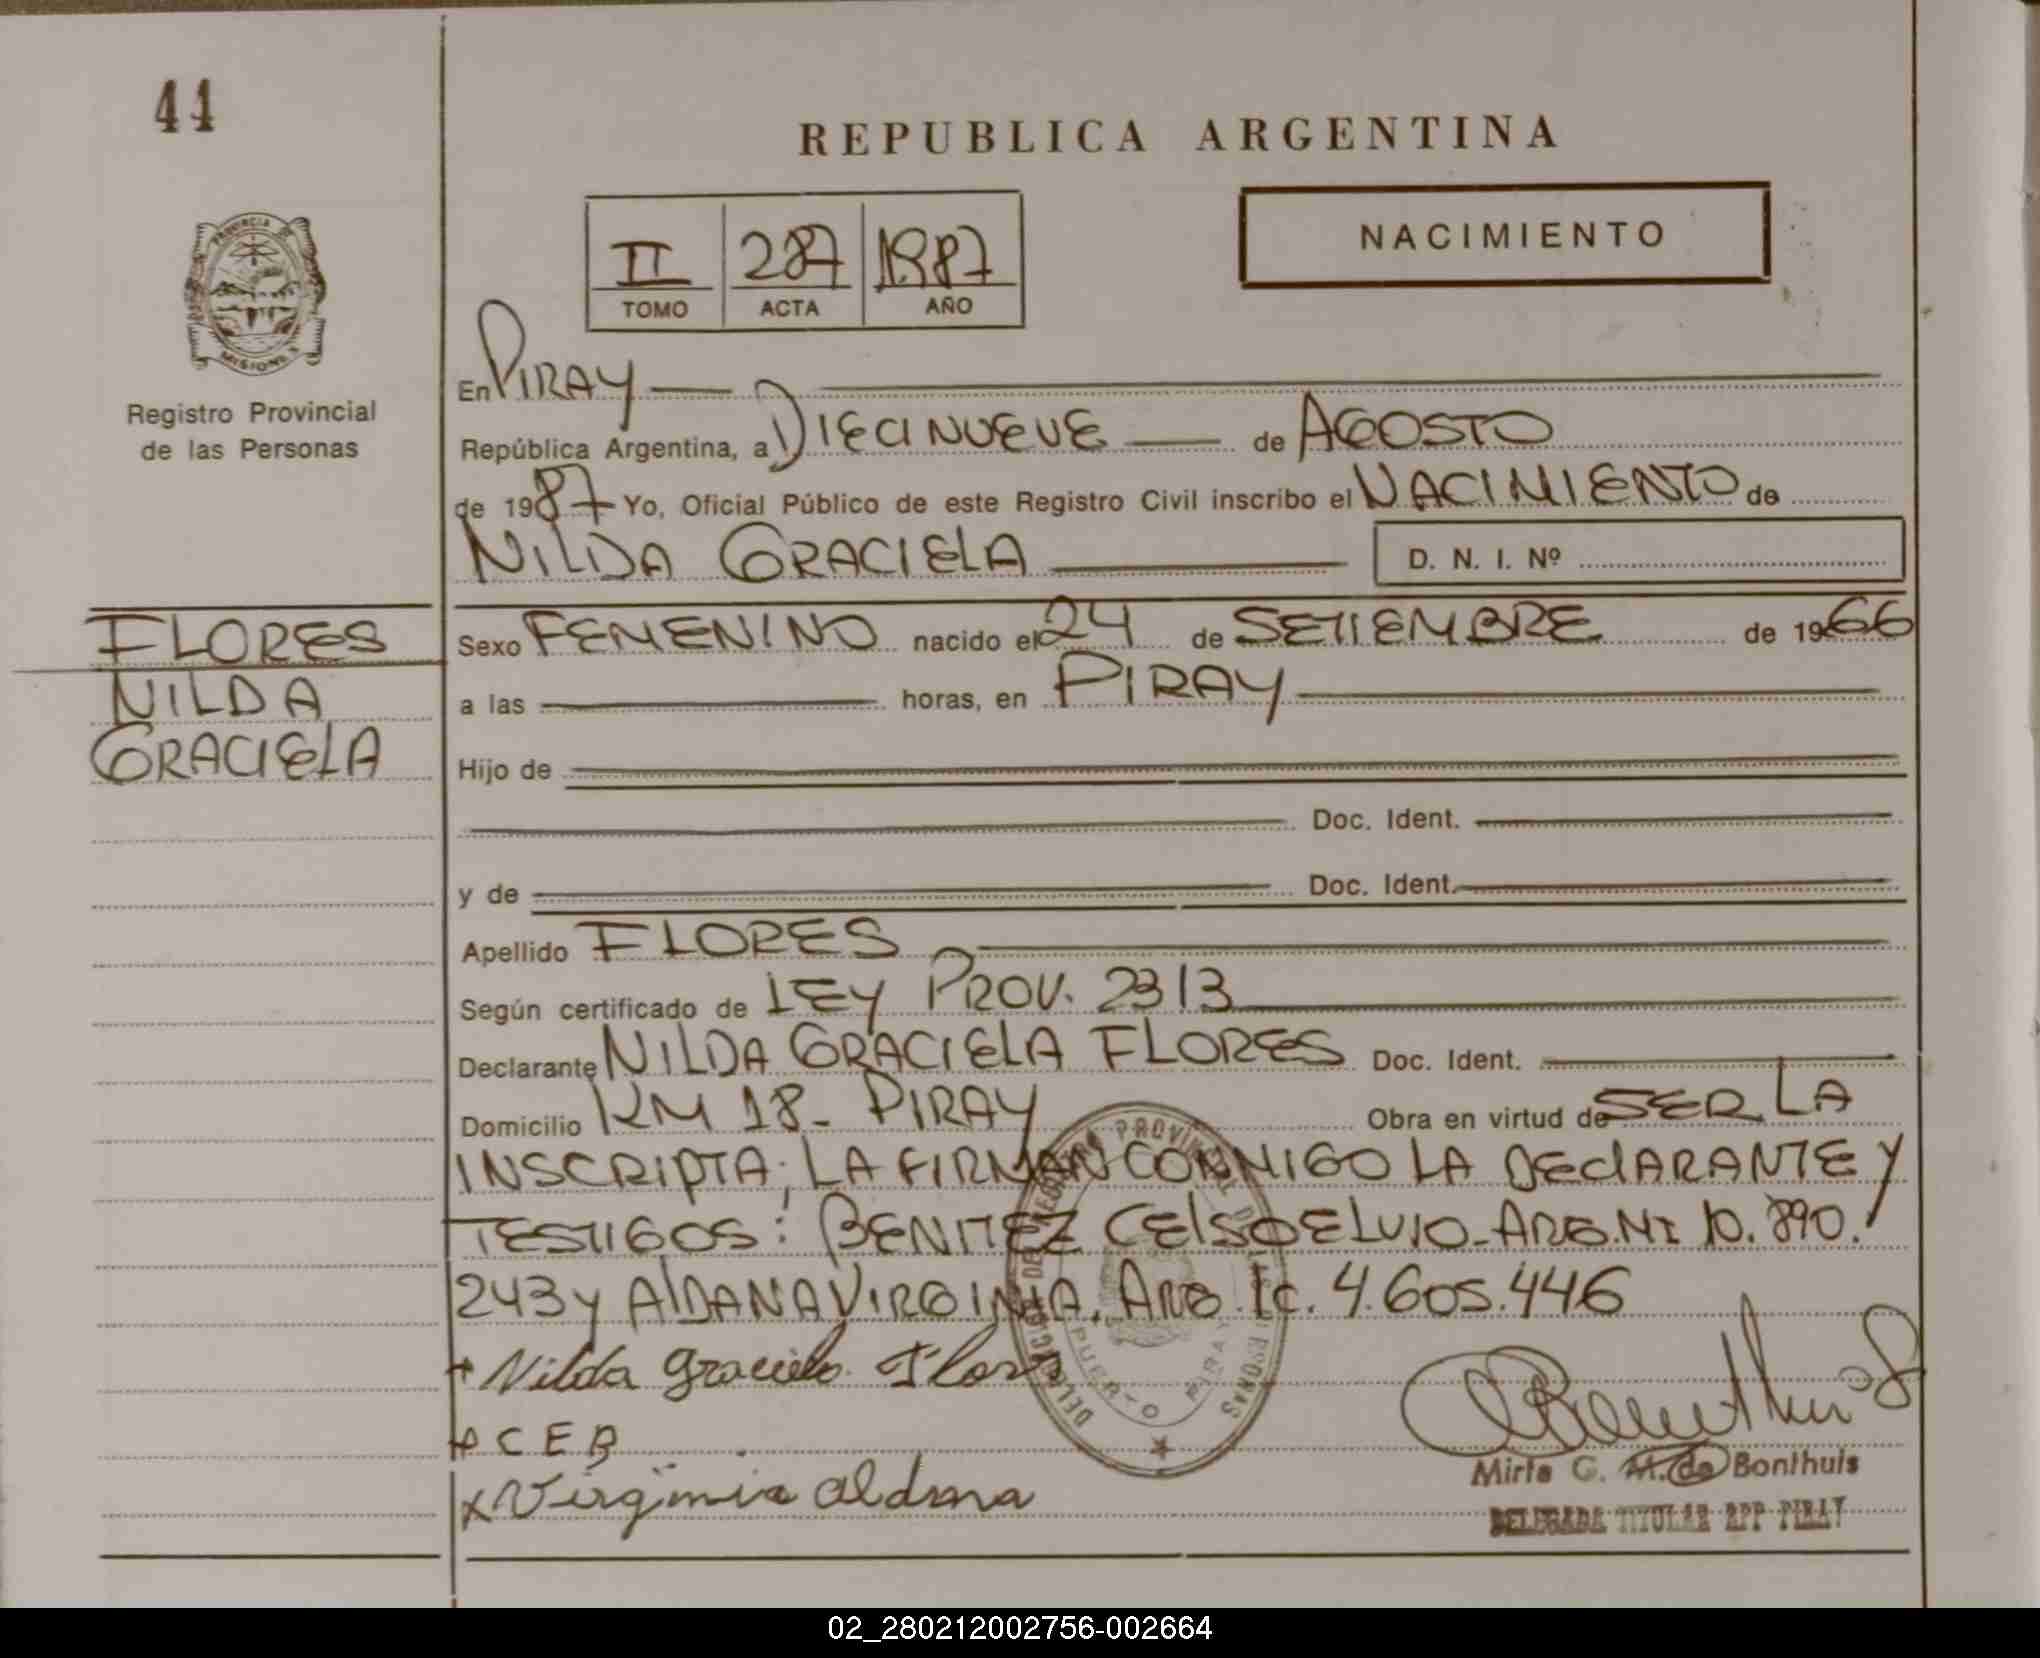 44
REPUBLICA ARGENTINA
NACIMIENTO
II 287 1987
TOMO ACTA AÑO
PROVINCIA DE
MISIONES
Registro Provincial
de las Personas
En PIRAY
República Argentina, a DIECINUEVE de AGOSTO
de 1987 Yo, Oficial Público de este Registro Civil inscribo el NACIMIENTO de
NILDA GRACIELA D. N. I. Nº
FLORES
NILDA
GRACIELA
Sexo FEMENINO nacido el 24 de SETIEMBRE de 1966
a las horas, en PIRAY
Hijo de
Doc. Ident.
y de Doc. Ident.
Apellido FLORES
Según certificado de LEY PROV. 2313
Declarante NILDA GRACIELA FLORES Doc. Ident.
Domicilio KM 18- PIRAY Obra en virtud de SER LA
INSCRIPTA; LA FIRMAN CONMIGO LA DECLARANTE Y
TESTIGOS: BENITEZ CELSO ELVIO-ARG.MI 10.890.
243 y ALDANA VIRGINIA. ARG. Ic. 4.605.446
+ Nilda Graciela Flores
+ CEB
x Virginia aldana
Mirta G. M. de Bonthuis
DELEGADA TITULAR RPP PIRAY
PUERTO PIRAY
02_280212002756-002664